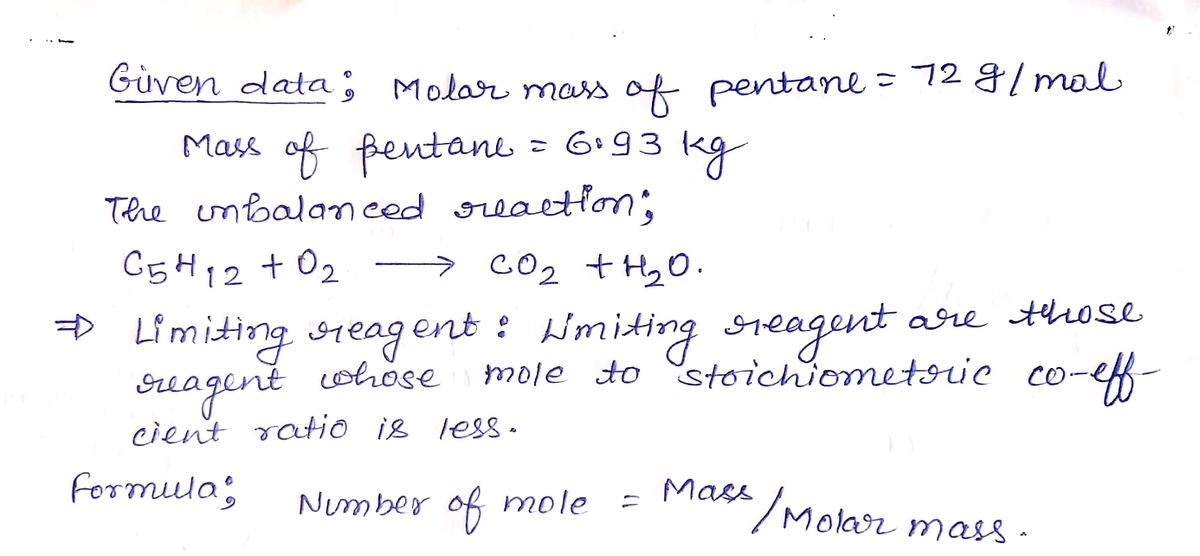 Given data; Molar mass of pentane = 72 g/mol
Mass of pentane = 6.93 kg
The unbalanced reaction;
C5H12 + O2 ⟶ CO2 + H2O.
⇒ Limiting reagent : Limiting reagent are those
reagent whose mole to stoichiometric co-eff-
cient ratio is less.
Formula; Number of mole = Mass / Molar mass.